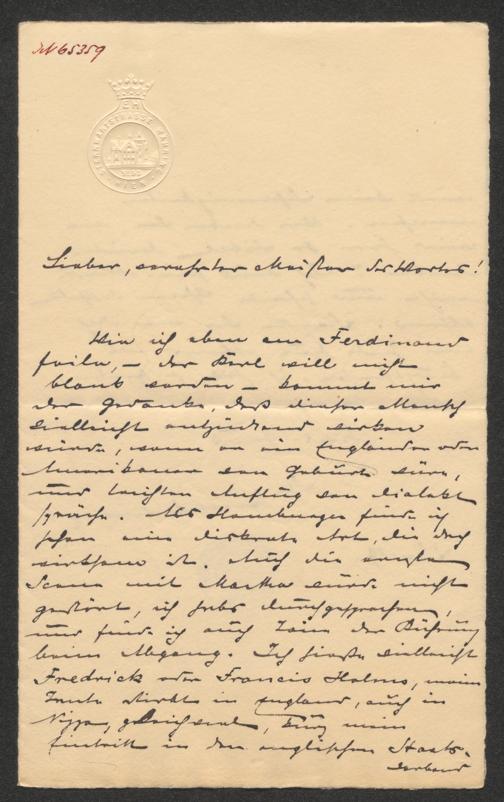 IN 65359
EH
STERNWARTSTRASSE
WIEN
Lieber, verehrter Meister des Wortes!
Wie ich eben am Ferdinand
feile, – der Kerl will nicht
blank werden – kommt mir
der Gedanke, daß dieser Mensch
vielleicht entzückend wirken
würde, wenn er ein Engländer oder
Amerikaner von Geburt wäre,
und leichten Anflug von Dialekt
spräche. Als Hamburger finde ich
schon eine diskrete Art, die doch
wirksam ist. Auch die ernste
Scene mit Martha würde nicht
gestört, ich habs durchgesprochen,
und finde ich auch Töne der Rührung
beim Abgang. Ich hieße vielleicht
Fredrick oder Francis Holms, meine
Tante stirbt in England, auch in
Nizza, gleichviel, kurz mein
Eintritt in den englischen Staats-
verband